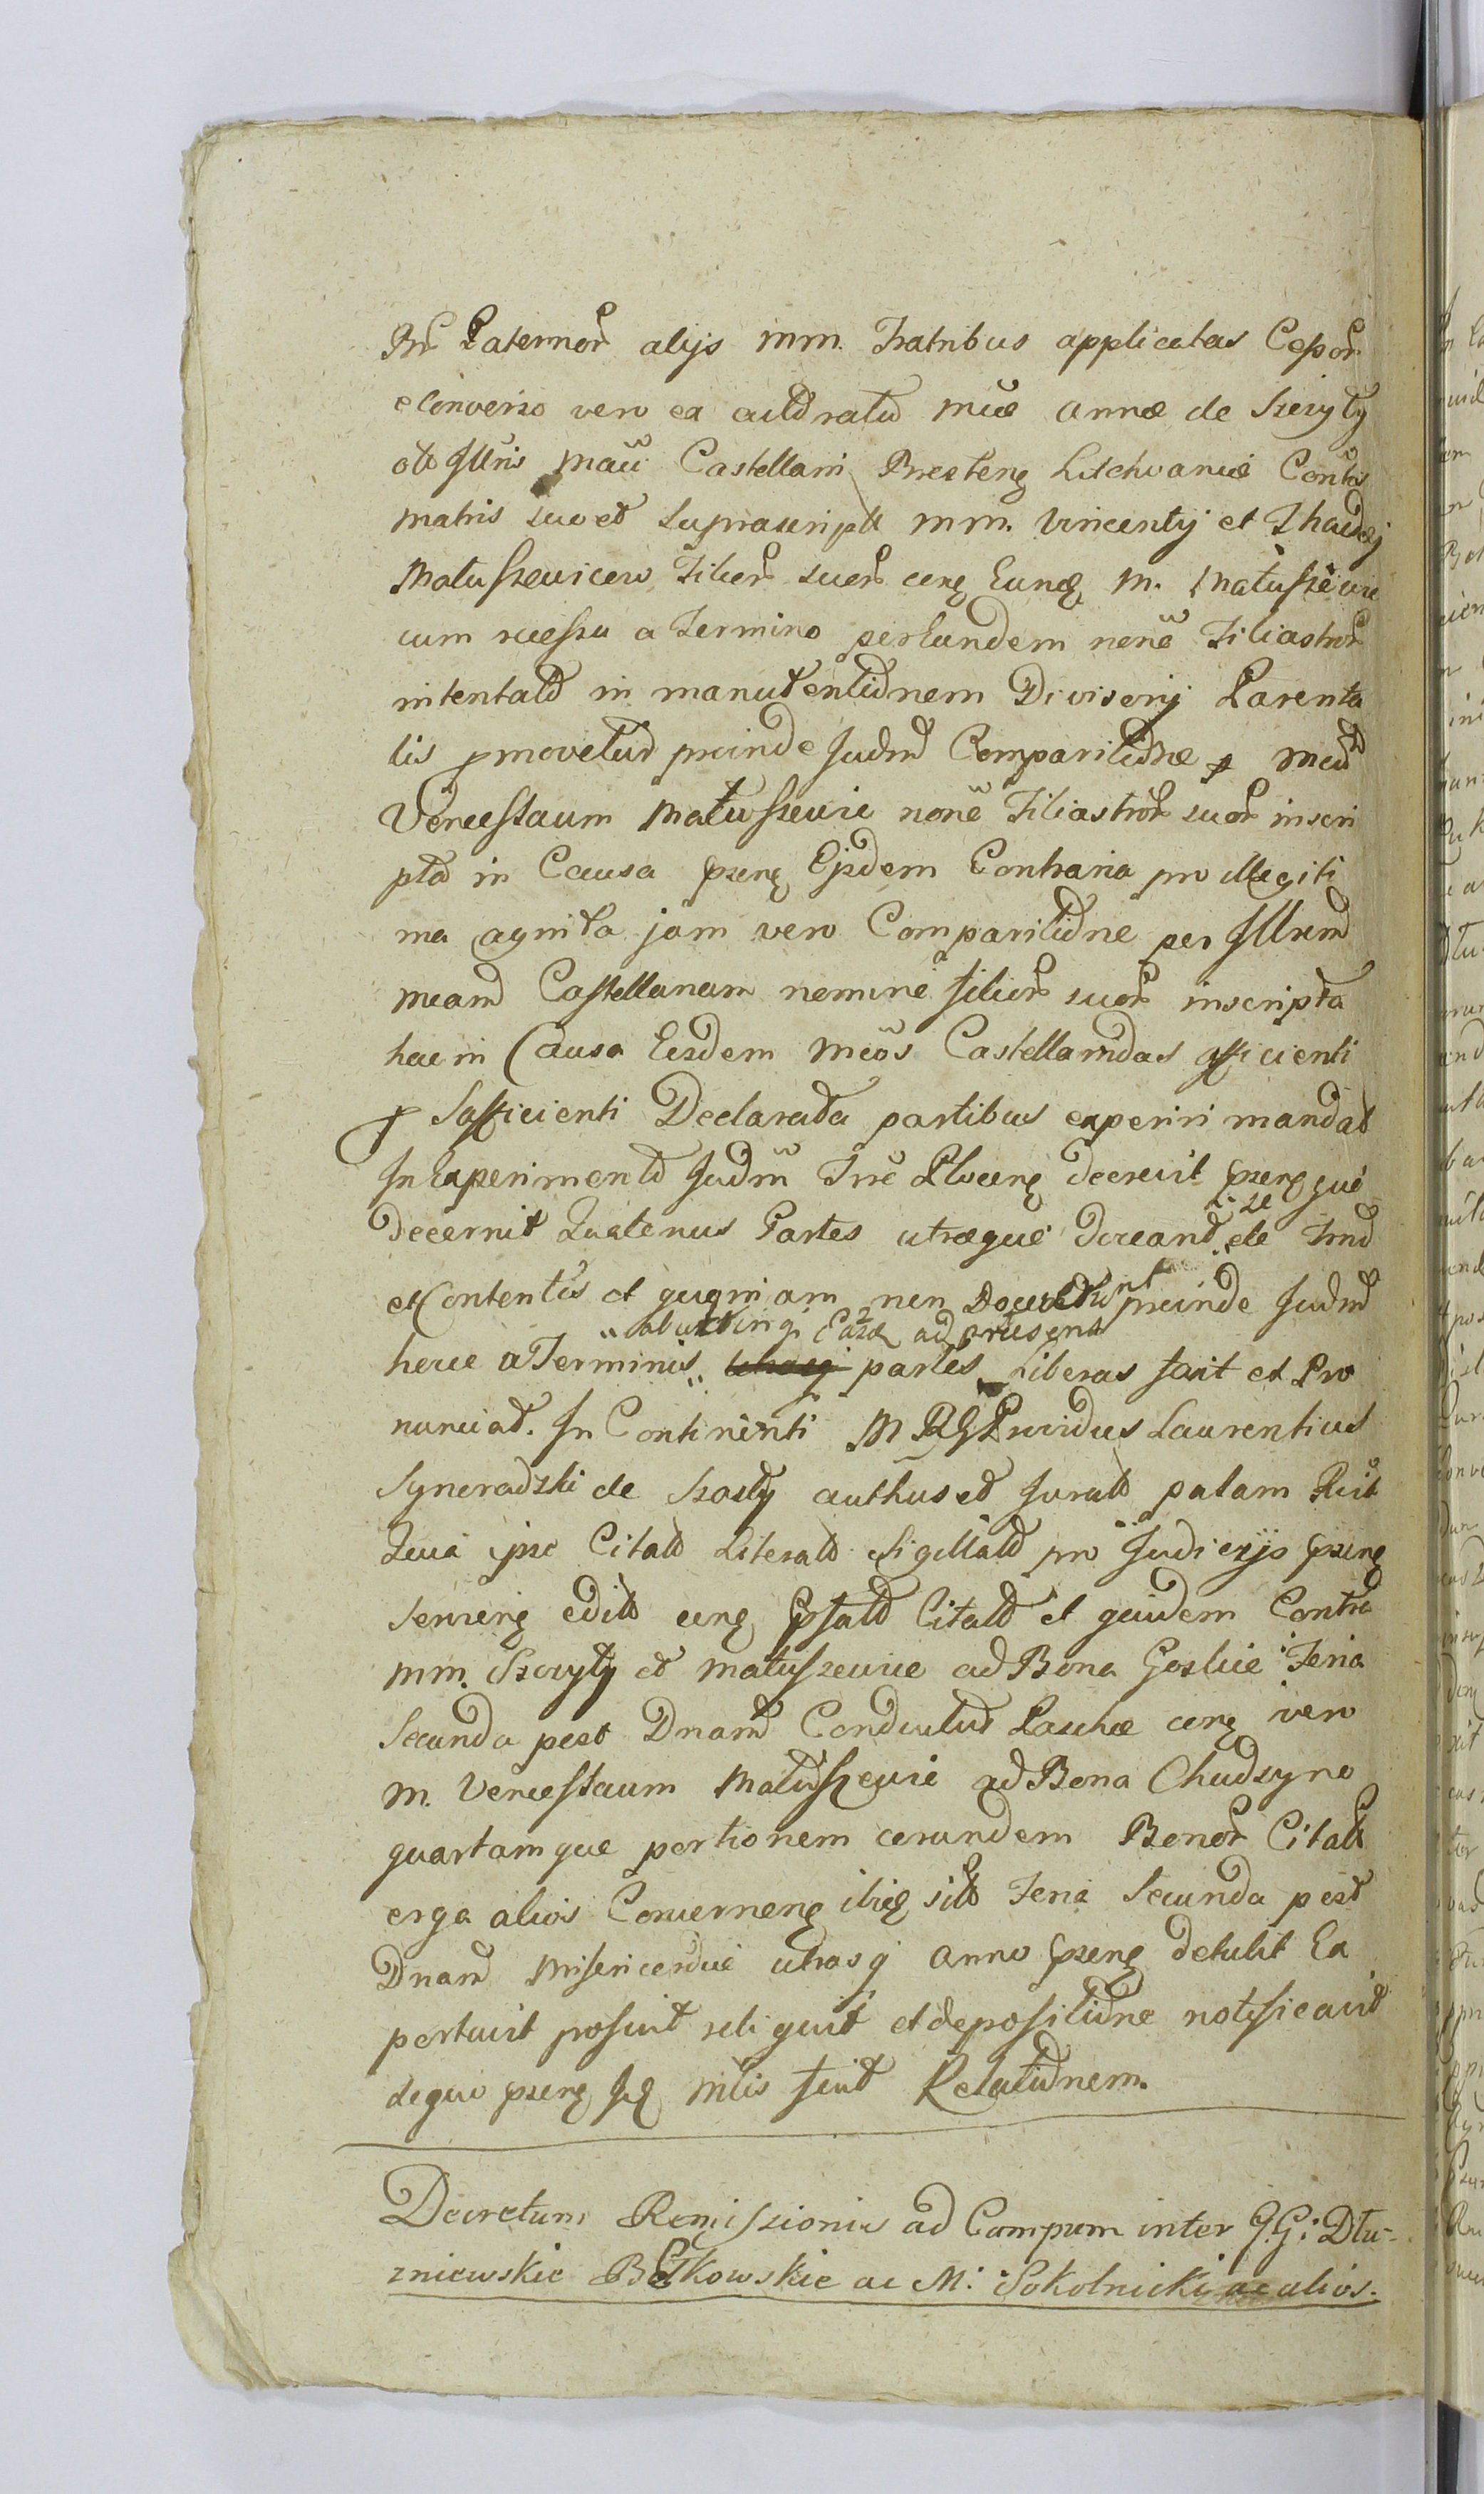 Br̃ Paternor̃ alijs mm. Fratribus applicatas Cepor̃
e Converso vero ex actoratu mcæ Annæ de Szczyty
olo Illris Mgci Castellani Brestenę Lithvaniæ Contis
matris suo et suprascripti mm. Vincentij et Thadej
Matuszewicow Filior̃ suor̃ cerę Eunę M. Matuszewic
cum recessu a Termino per Eundem noñe Filiastror̃
intentato in manutentionem Divisorij Parenta
lis promovetur proinde Judm̃ Comparitione p Mcum
Venceslaum Matuszewic noñe Filiastror̃ suor̃ inscri
pta in Causa pzenę Ejsdem Contraria pro illegiti
ma agnita jam vero Comparitione per Illrem
mcam Castellanam nomine filior̃ suor̃ inscripta
hac in Causa Eisdem Mcos Castellanidas afficienti
p Sufficienti Declarata partibus experiri mandat
In Experimento Judm̃ Trre Plocenę decrevit pzenęque
Decernit Quatenus Partes utræque doceant de Trno
i se
et Contentis et quoniam non Docuerunt proinde Judm̃
ab utringj Eaze ad præsens
hocce a Terminis partes Liberas facit et Pro
nunciat. In Continenti M RG Providus Laurentius
Syneradzki de Szosty authus et Jurat palam Rcit
Quia ipse Citato Literato Sigillato pro Judicijs pzenę
servienę edito cerę Epstalo Citato et quidem Contra
mm. Szczyty et Matuszewic ad Bona Goslice Feria
Secunda post Dnam Conductus Paschæ cerę vero
M. Venceslaum Matuszewic ad Bona Chudzyno
quartamque portionem eorundem Bonor̃ Citato
erga alios Concernenę ibię sito Feria Secunda post
Dnam Misericordiæ utrasq̃ Anno pzenę detulit Ex
portavit posuit reliquit et de positione notificavit
de quo pzenę Ję mlis fecit Relationem.
Decretum Remissionis ad Campum inter G.G: Dłu-
zniewskie Bętkowskie ac M: Sokolnicki ac alios.